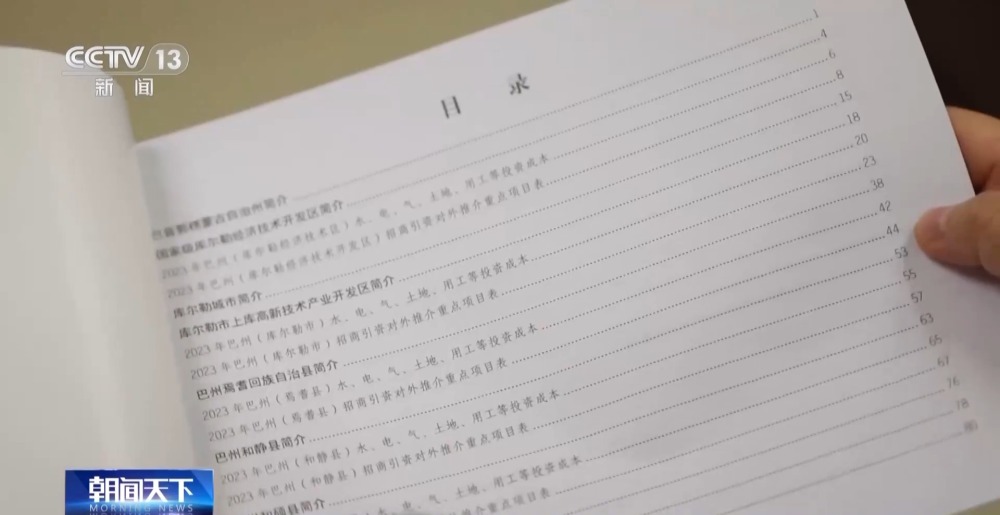 CCTV 13
新闻
目 录
巴音郭楞蒙古自治州简介 1
国家级库尔勒经济技术开发区简介 4
2023年巴州（库尔勒经济技术区）水、电、气、土地、用工等投资成本 6
2023年巴州（库尔勒经济技术开发区）招商引资对外推介重点项目表 8
库尔勒城市简介 15
库尔勒市上库高新技术产业开发区简介 18
2023年巴州（库尔勒市）水、电、气、土地、用工等投资成本 20
2023年巴州（库尔勒市）招商引资对外推介重点项目表 23
巴州焉耆回族自治县简介 38
2023年巴州（焉耆县）水、电、气、土地、用工等投资成本 42
2023年巴州（焉耆县）招商引资对外推介重点项目表 44
巴州和静县简介 53
2023年巴州（和静县）水、电、气、土地、用工等投资成本 55
2023年巴州（和静县）招商引资对外推介重点项目表 57
和硕县简介 63
水、电、气、土地、用工等投资成本 65
招商引资对外推介重点项目表 67
76
78
80
朝闻天下
MORNING NEWS